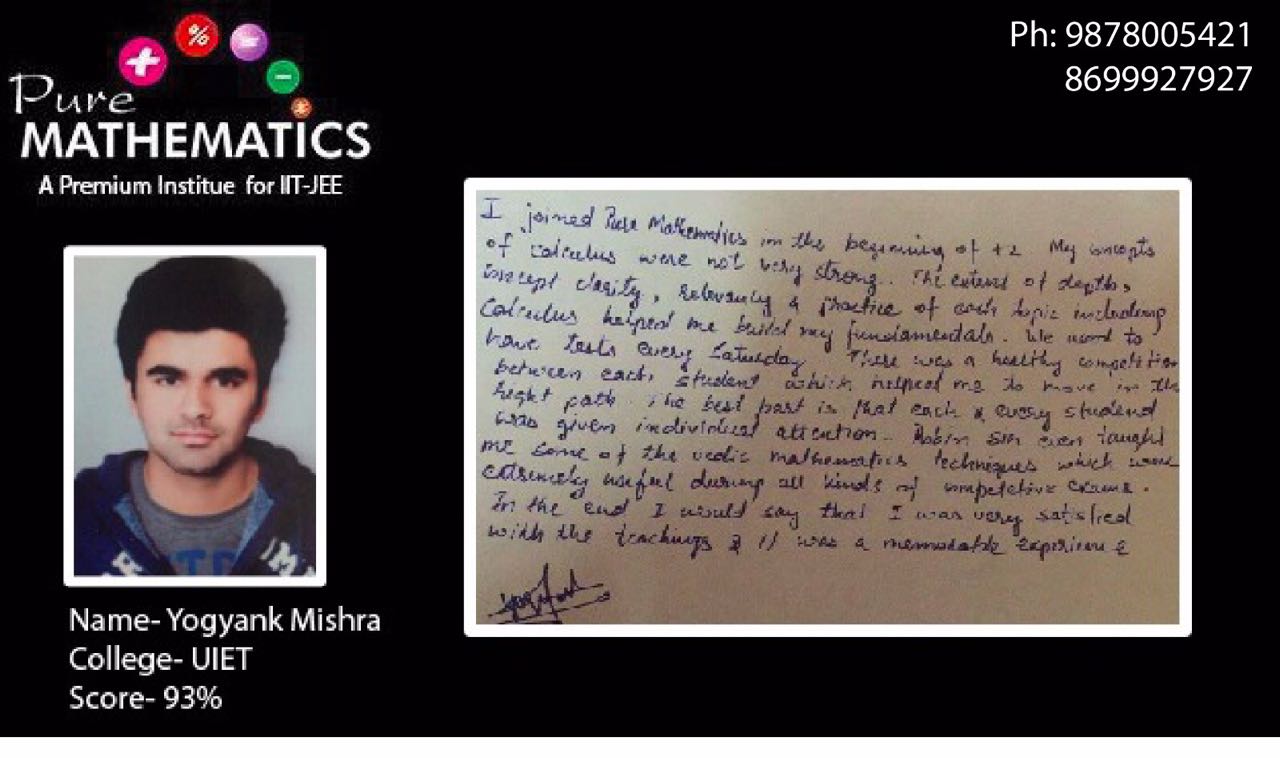 Pure
MATHEMATICS
A Premium Institue for IIT-JEE
Ph: 9878005421
8699927927
I joined Pure Mathematics in the beginning of +2 My concepts
of calculus were not very strong. The extent of depth,
concept clarity, relevancy & practice of each topic including
Calculus helped me build my fundamentals. We used to
have tests every Saturday There was a healthy competition
between each student which helped me to move in the
right path. The best part is that each & every student
was given individual attention. Robin Sir even taught
me some of the vedic mathematics techniques which were
extremely useful during all kinds of competetive exams.
In the end I would say that I was very satisfied
with the teachings & it was a memorable experience
Name- Yogyank Mishra
College- UIET
Score- 93%